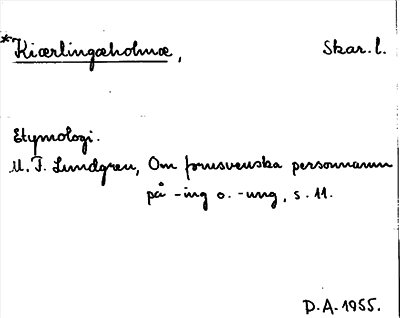 *Kiærlingæholmæ, Skar. l.
Etymologi.
M. F. Lundgren, Om fornsvenska personnamn
på -ing o. -ung, s. 11.
D.A. 1955.